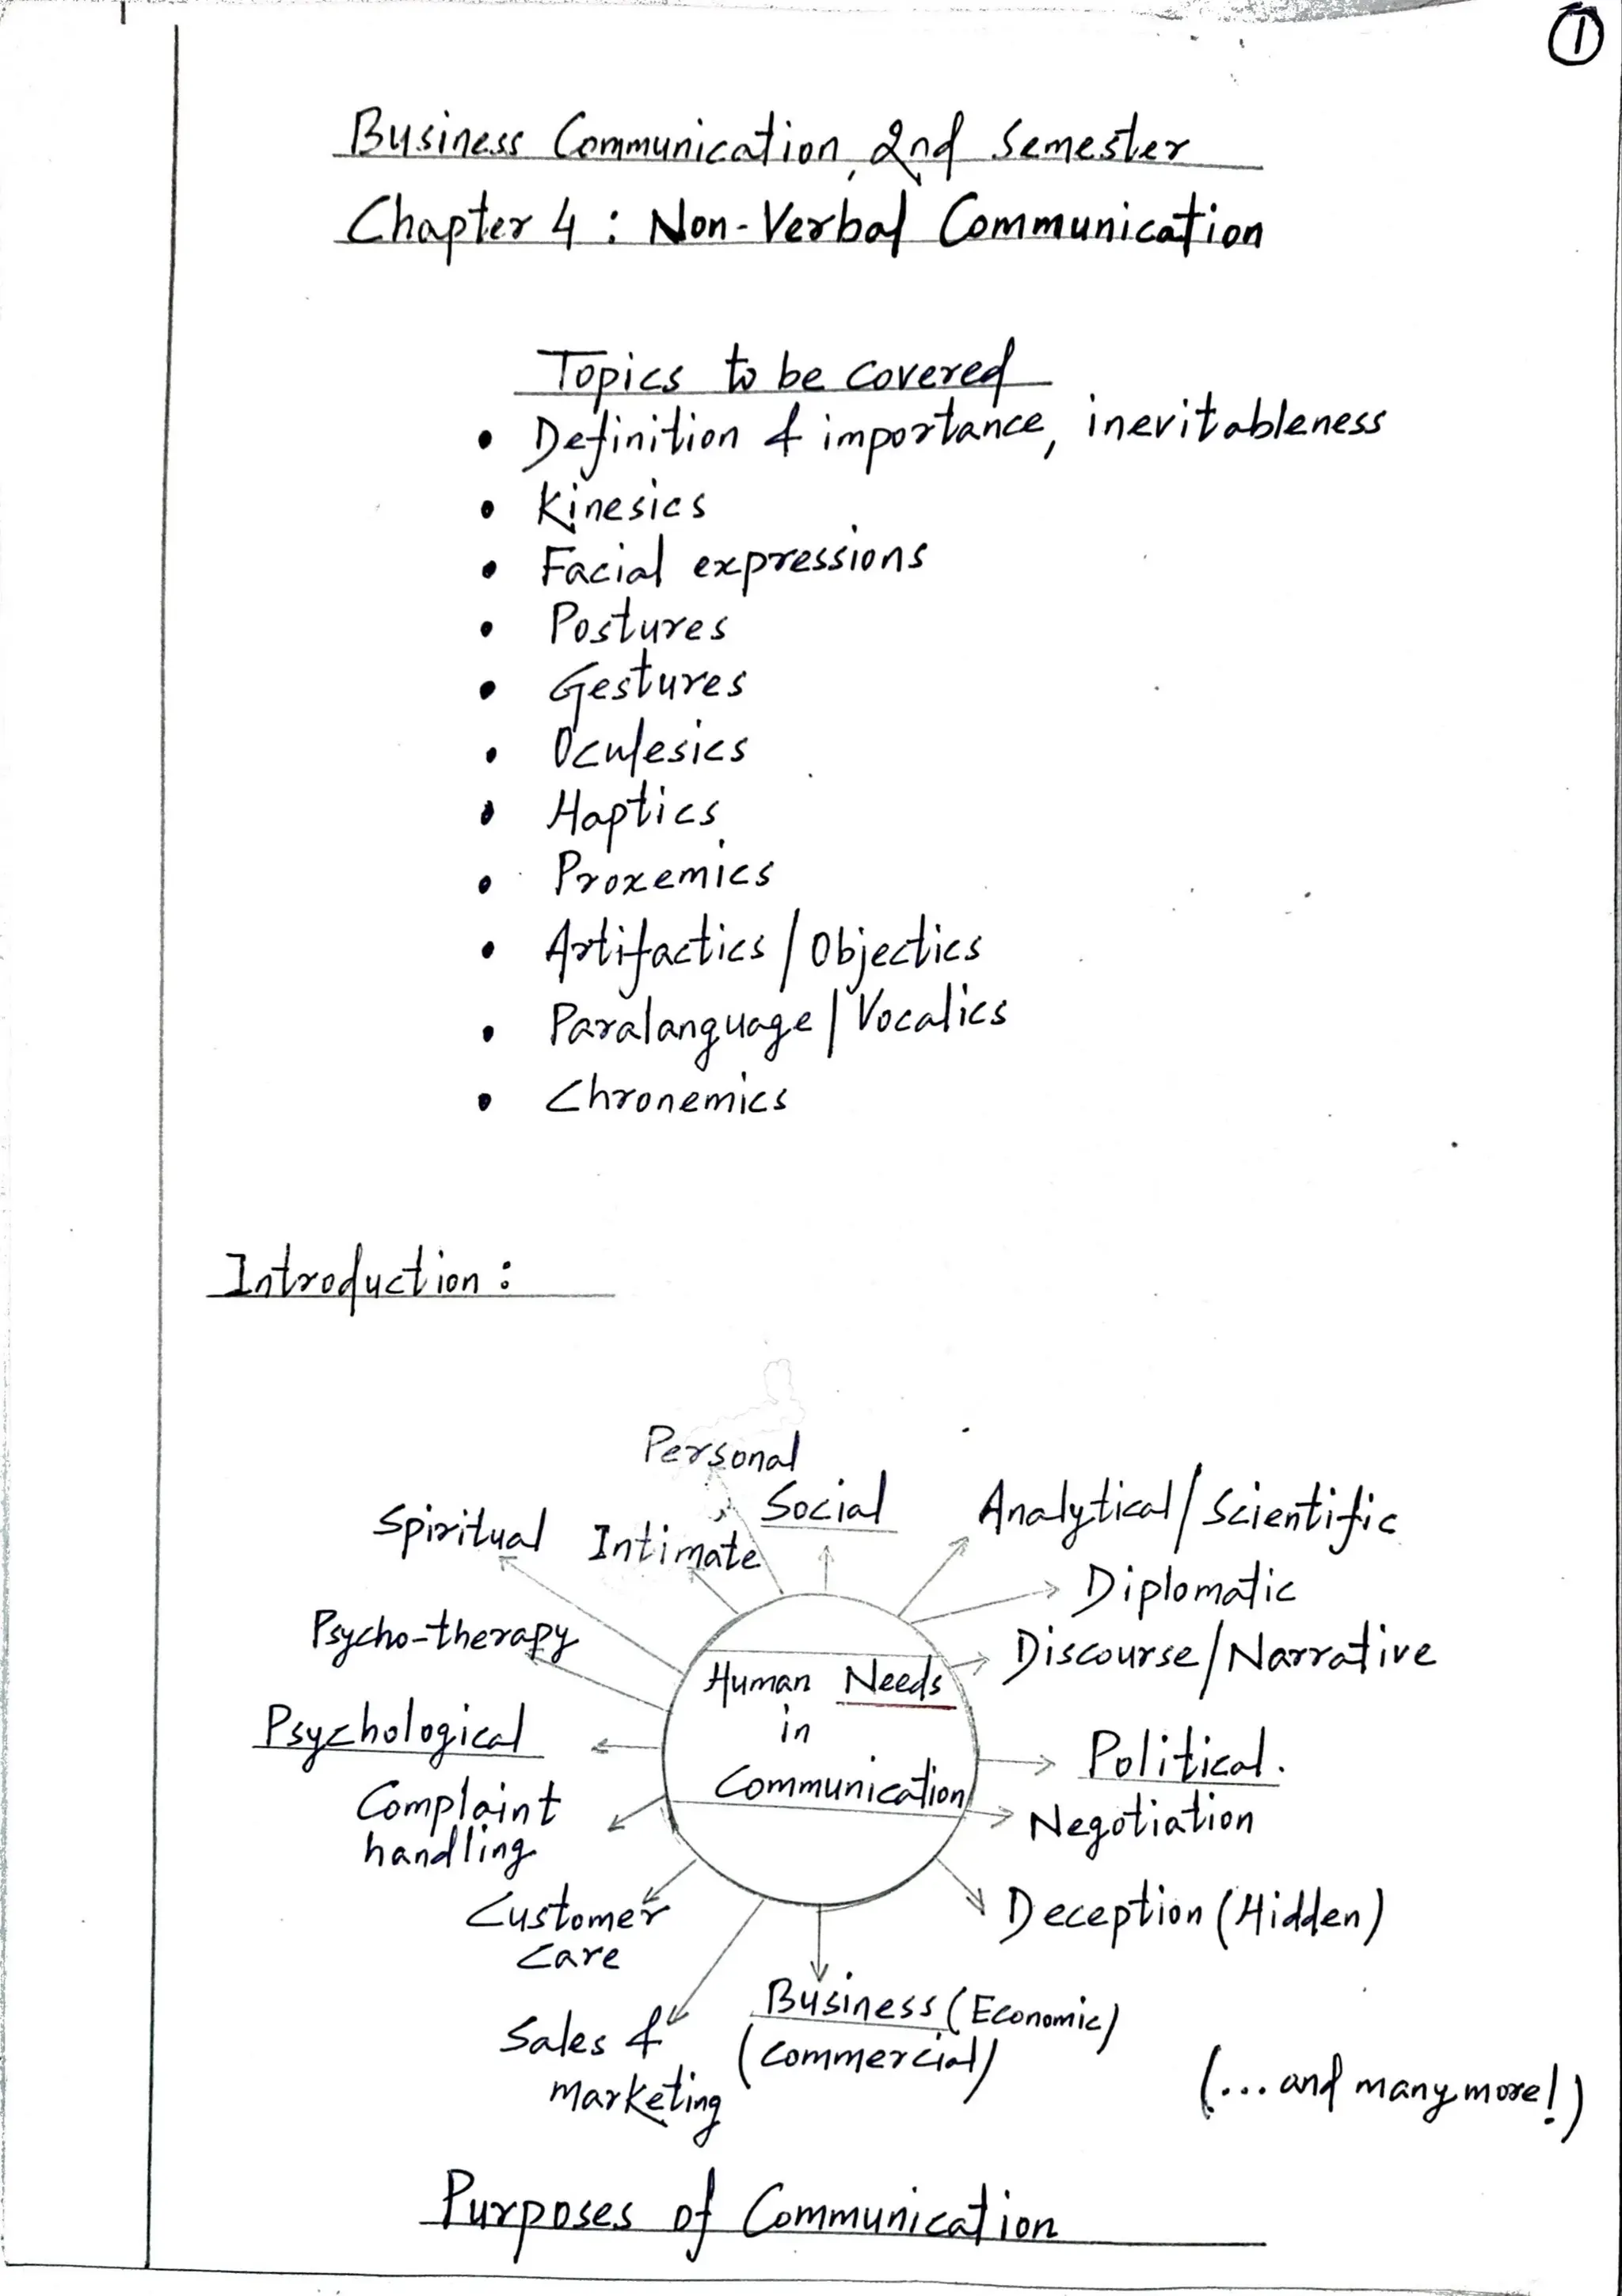 1
Business Communication, 2nd Semester
Chapter 4 : Non-Verbal Communication
Topics to be covered
• Definition & importance, inevitableness
• Kinesics
• Facial expressions
• Postures
• Gestures
• Oculesics
• Haptics
• Proxemics
• Artifactics / Objectics
• Paralanguage / Vocalics
• Chronemics
Introduction :
Personal
Social
Analytical / Scientific
Spiritual
Intimate
Diplomatic
Psycho-therapy
Discourse / Narrative
Human Needs
in
Communication
Psychological
Political.
Complaint
handling
Negotiation
Customer
care
Deception (Hidden)
Sales &
marketing
Business (Economic)
(Commercial)
(... and many more!)
Purposes of Communication